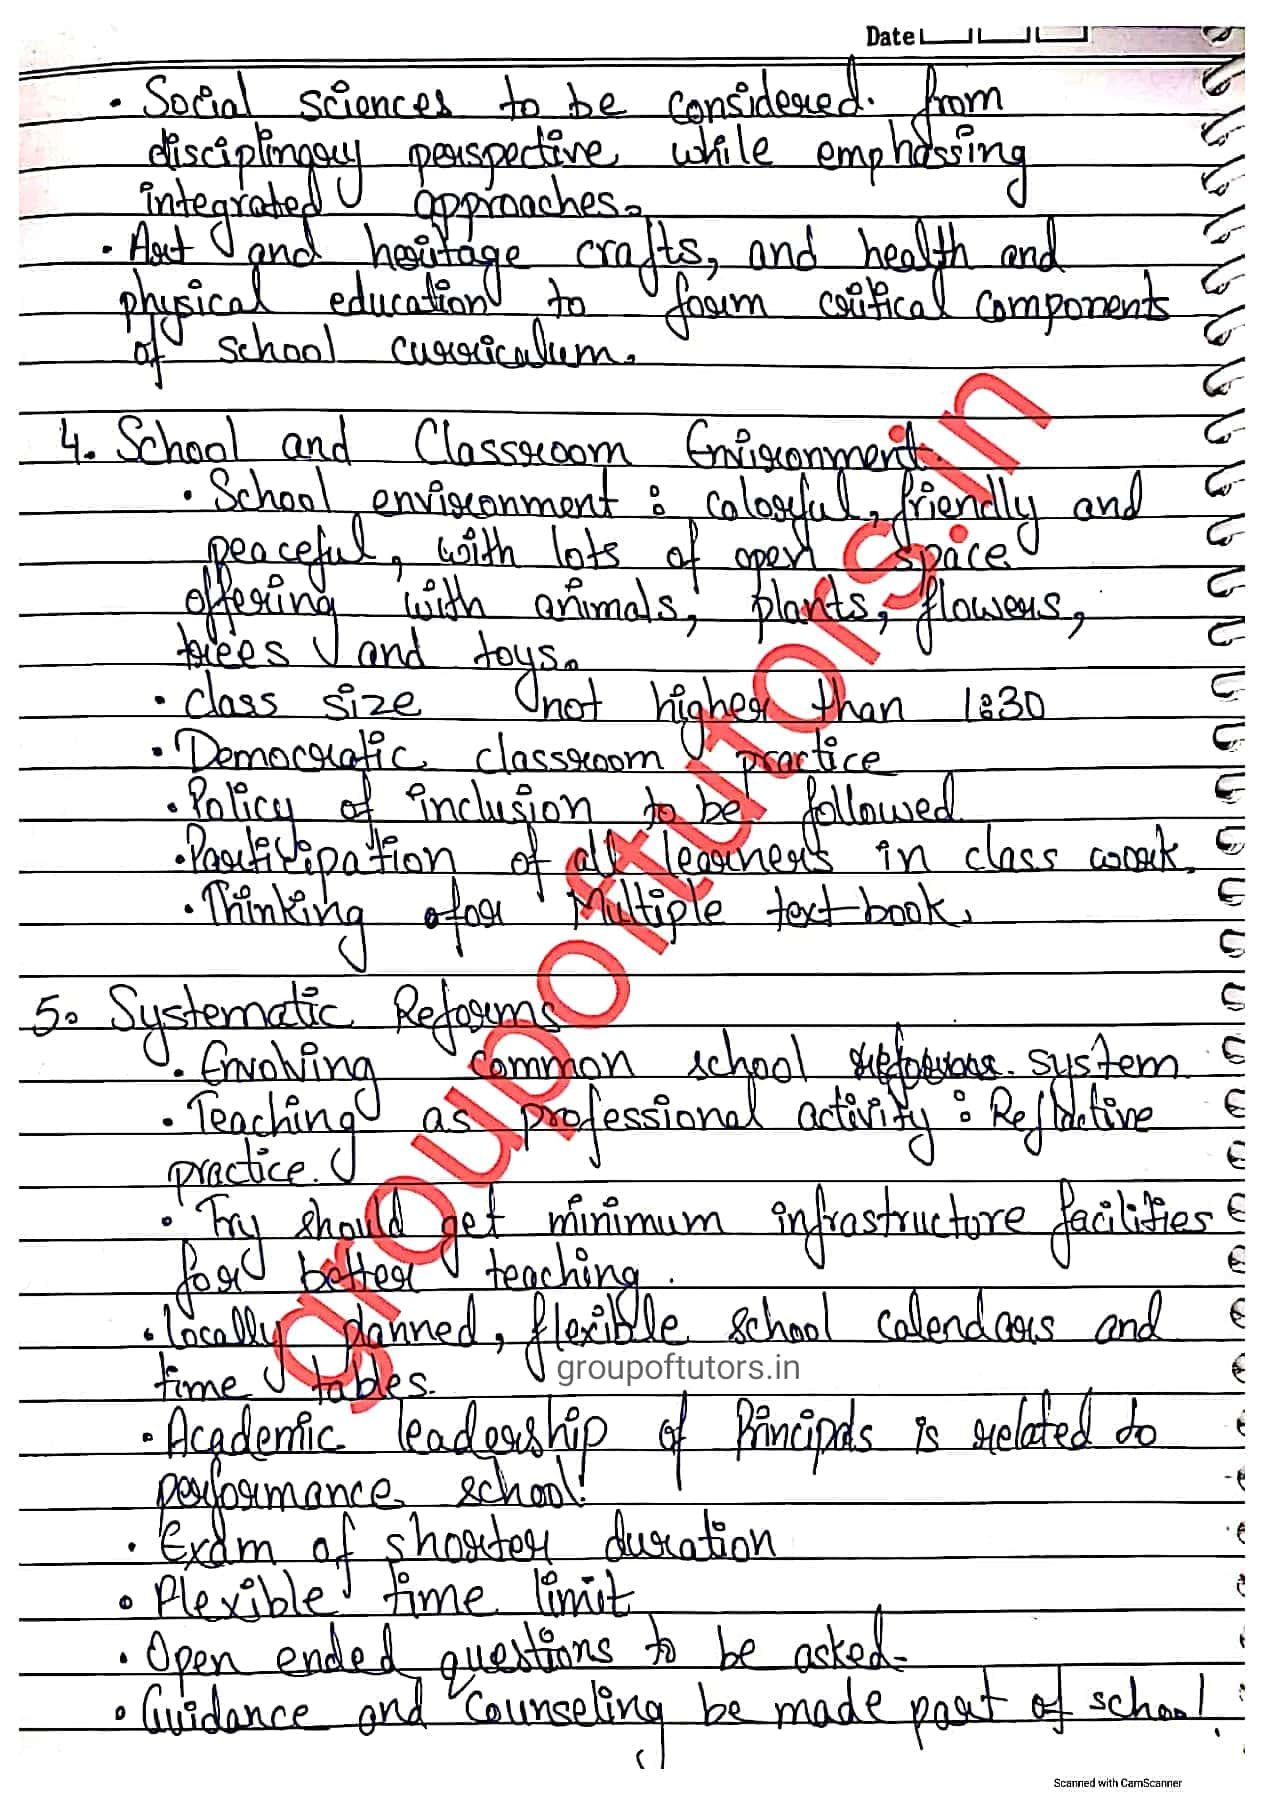 Date
• Social sciences to be considered. from
disciplinary perspective while emphassing
integrated approaches.
• Art and heritage crafts, and health and
physical education to form critical components
of school curriculum.
4. School and Classroom Environment.
• School environment : colorful, friendly and
peaceful, with lots of open space
offering with animals, plants, flowers,
trees and toys.
• Class size not higher than 1:30
• Democratic classroom practice
• Policy of inclusion to be followed
• Participation of all learners in class work.
• Thinking for Multiple text-book.
5. Systematic Reforms
• Envolving common school system
• Teaching as professional activity : Reflactive
practice.
• Try should get minimum infrastructure facilities
for better teaching.
• Locally planned, flexible school calendars and
time tables.
groupoftutors.in
• Academic leadership of Principals is related to
performance school.
• Exam of shorter duration
• Flexible time limit
• Open ended questions to be asked.
• Guidance and Counseling be made part of school.
groupoftutors.in
Scanned with CamScanner